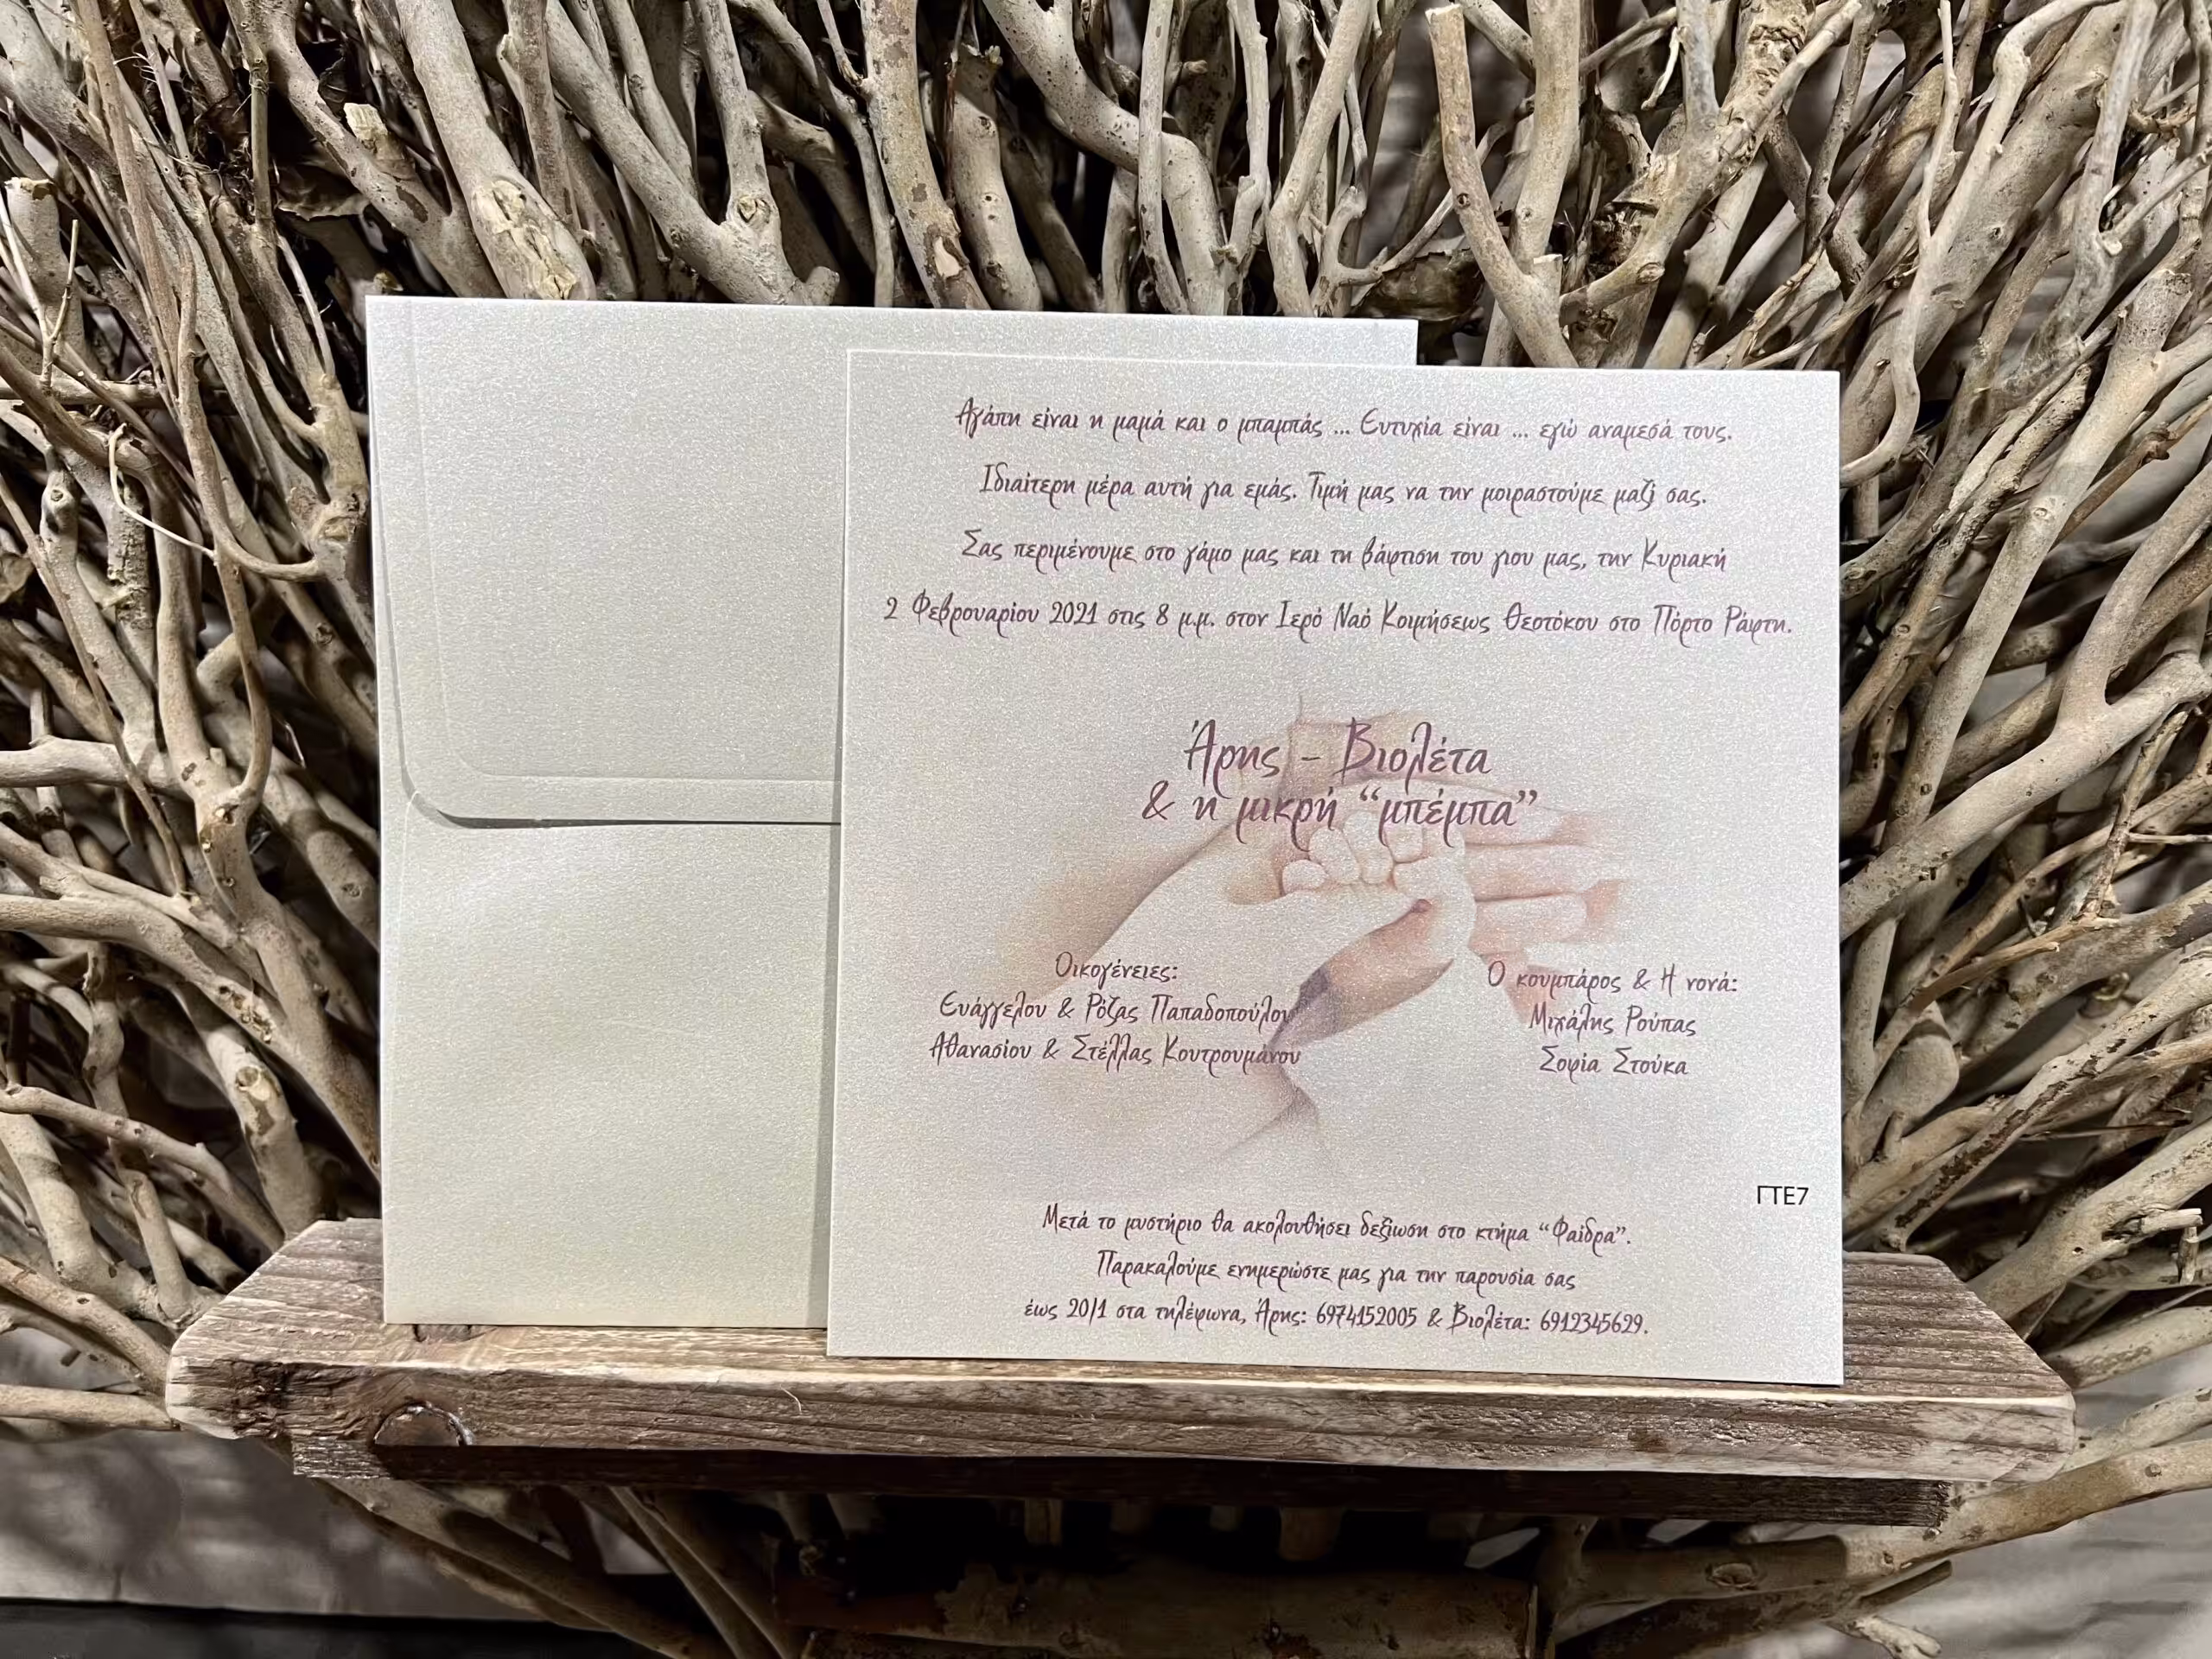 Αγάπη είναι η μαμά και ο μπαμπάς ... Ευτυχία είναι ... εγώ αναμεσά τους.
Ιδιαίτερη μέρα αυτή για εμάς. Τιμή μας να την μοιραστούμε μαζί σας.
Σας περιμένουμε στο γάμο μας και τη βάφτιση του γιου μας, την Κυριακή
2 Φεβρουαρίου 2021 στις 8 μ.μ. στον Ιερό Ναό Κοιμήσεως Θεοτόκου στο Πόρτο Ράφτη.
Άρης - Βιολέτα
& η μικρή “μπέμπα”
Οικογένειες:
Ευάγγελου & Ρόζας Παπαδοπούλου
Αθανασίου & Στέλλας Κουτρουμάνου
Ο κουμπάρος & Η νονά:
Μιχάλης Ρούπας
Σοφία Στούκα
ΓΤΕ7
Μετά το μυστήριο θα ακολουθήσει δεξίωση στο κτήμα “Φαίδρα”.
Παρακαλούμε ενημερώστε μας για την παρουσία σας
έως 20/1 στα τηλέφωνα, Άρης: 6974152005 & Βιολέτα: 6912345629.